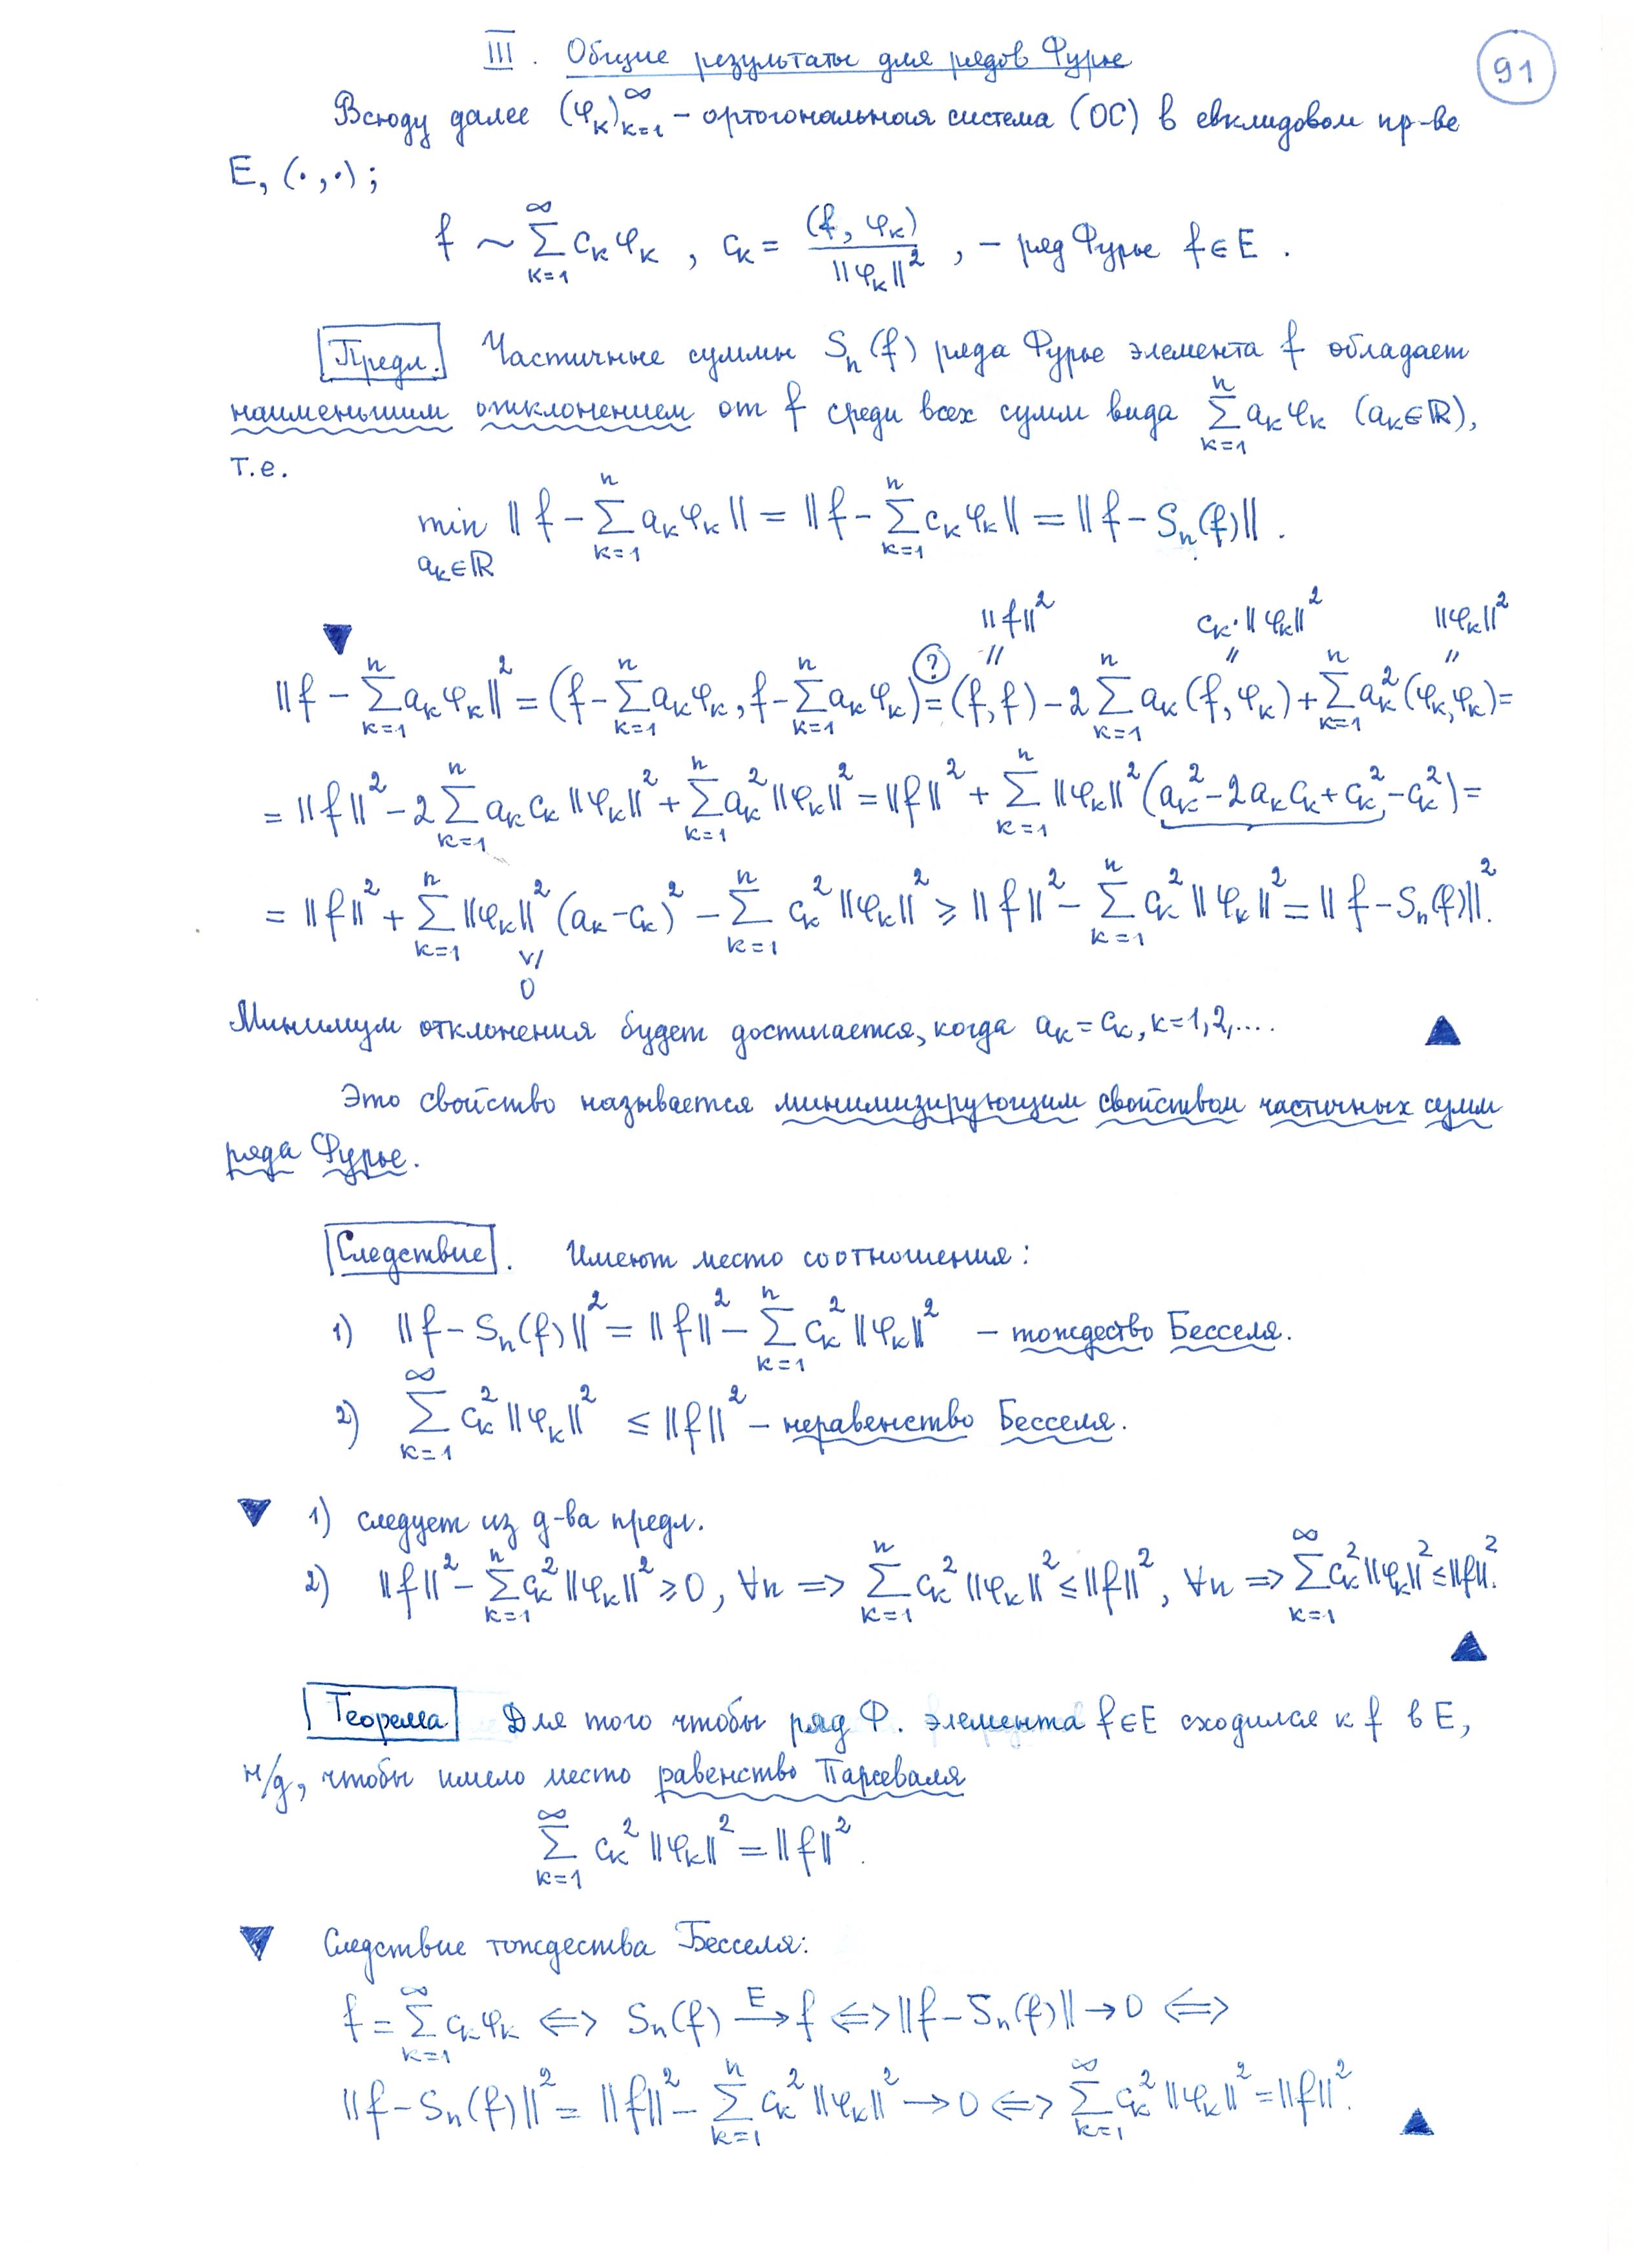 III. Общие результаты для рядов Фурье
91
Всюду далее (φ_k)_{k=1}^∞ – ортогональная система (ОС) в евклидовом пр-ве
E, (·,·);
f ~ ∑_{k=1}^∞ c_k φ_k , c_k = (f, φ_k) / ||φ_k||² , – ряд Фурье f ∈ E .
Предл. Частичные суммы S_n(f) ряда Фурье элемента f обладает
наименьшим отклонением от f среди всех сумм вида ∑_{k=1}^n a_k φ_k (a_k ∈ ℝ),
т.е.
min_{a_k∈ℝ} || f – ∑_{k=1}^n a_k φ_k || = || f – ∑_{k=1}^n c_k φ_k || = || f – S_n(f) || .
||f||² c_k·||φ_k||² ||φ_k||²
▼ || f – ∑_{k=1}^n a_k φ_k ||² = (f – ∑_{k=1}^n a_k φ_k, f – ∑_{k=1}^n a_k φ_k) =(?) (f,f) – 2 ∑_{k=1}^n a_k (f, φ_k) + ∑_{k=1}^n a_k² (φ_k, φ_k) =
= ||f||² – 2 ∑_{k=1}^n a_k c_k ||φ_k||² + ∑_{k=1}^n a_k² ||φ_k||² = ||f||² + ∑_{k=1}^n ||φ_k||² (a_k² – 2a_k c_k + c_k² – c_k²) =
= ||f||² + ∑_{k=1}^n ||φ_k||² (a_k – c_k)² – ∑_{k=1}^n c_k² ||φ_k||² ≥ ||f||² – ∑_{k=1}^n c_k² ||φ_k||² = || f – S_n(f) ||².
∨/
0
Минимум отклонения будет достигается, когда a_k = c_k, k=1,2,.... ▲
Это свойство называется минимизирующим свойством частичных сумм
ряда Фурье.
Следствие. Имеют место соотношения:
1) || f – S_n(f) ||² = ||f||² – ∑_{k=1}^n c_k² ||φ_k||² – тождество Бесселя.
2) ∑_{k=1}^∞ c_k² ||φ_k||² ≤ ||f||² – неравенство Бесселя.
▼ 1) следует из д-ва предл.
2) ||f||² – ∑_{k=1}^n c_k² ||φ_k||² ≥ 0, ∀n => ∑_{k=1}^n c_k² ||φ_k||² ≤ ||f||², ∀n => ∑_{k=1}^∞ c_k² ||φ_k||² ≤ ||f||².
▲
Теорема Для того чтобы ряд Ф. элемента f∈E сходился к f в E,
н/д, чтобы имело место равенство Парсеваля
∑_{k=1}^∞ c_k² ||φ_k||² = ||f||².
▼ Следствие тождества Бесселя:
f = ∑_{k=1}^∞ c_k φ_k <=> S_n(f) →^E f <=> || f – S_n(f) || → 0 <=>
|| f – S_n(f) ||² = ||f||² – ∑_{k=1}^n c_k² ||φ_k||² → 0 <=> ∑_{k=1}^∞ c_k² ||φ_k||² = ||f||². ▲